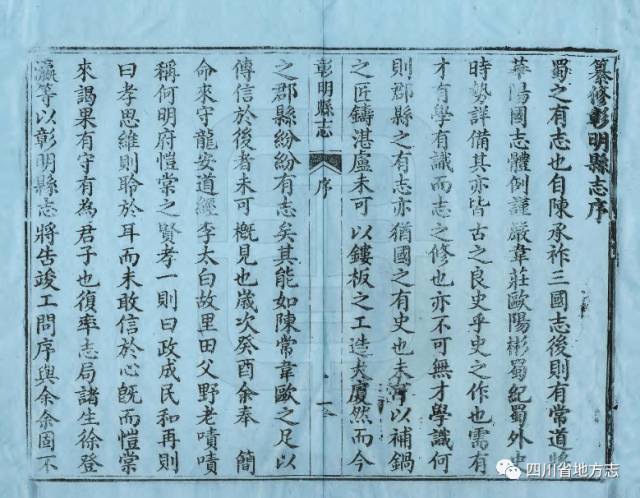 纂修彰明縣志序
蜀之有志也自陳承祚三國志後則有常道將
華陽國志體例謹嚴韋莊歐陽彬蜀紀蜀外史
時勢詳備其亦皆古之良史乎史之作也需有
才有學有識而志之修也亦不可無才學識何
則郡縣之有志亦猶國之有史也未可以補鍋
之匠鑄湛盧未可以鏤板之工造大廈然而今
彰明縣志 序 一
之郡縣紛紛有志矣其能如陳常韋歐之足以
傳信於後者未可概見也歲次癸酉余奉 簡
命來守龍安道經李太白故里田父野老嘖嘖
稱何明府愷棠之賢孝一則曰政成民和再則
曰孝思維則聆於耳而未敢信於心旣而愷棠
來謁果有守有為君子也復率志局諸生徐登
瀛等以彰明縣志將告竣工問序與余余固不
四川省地方志